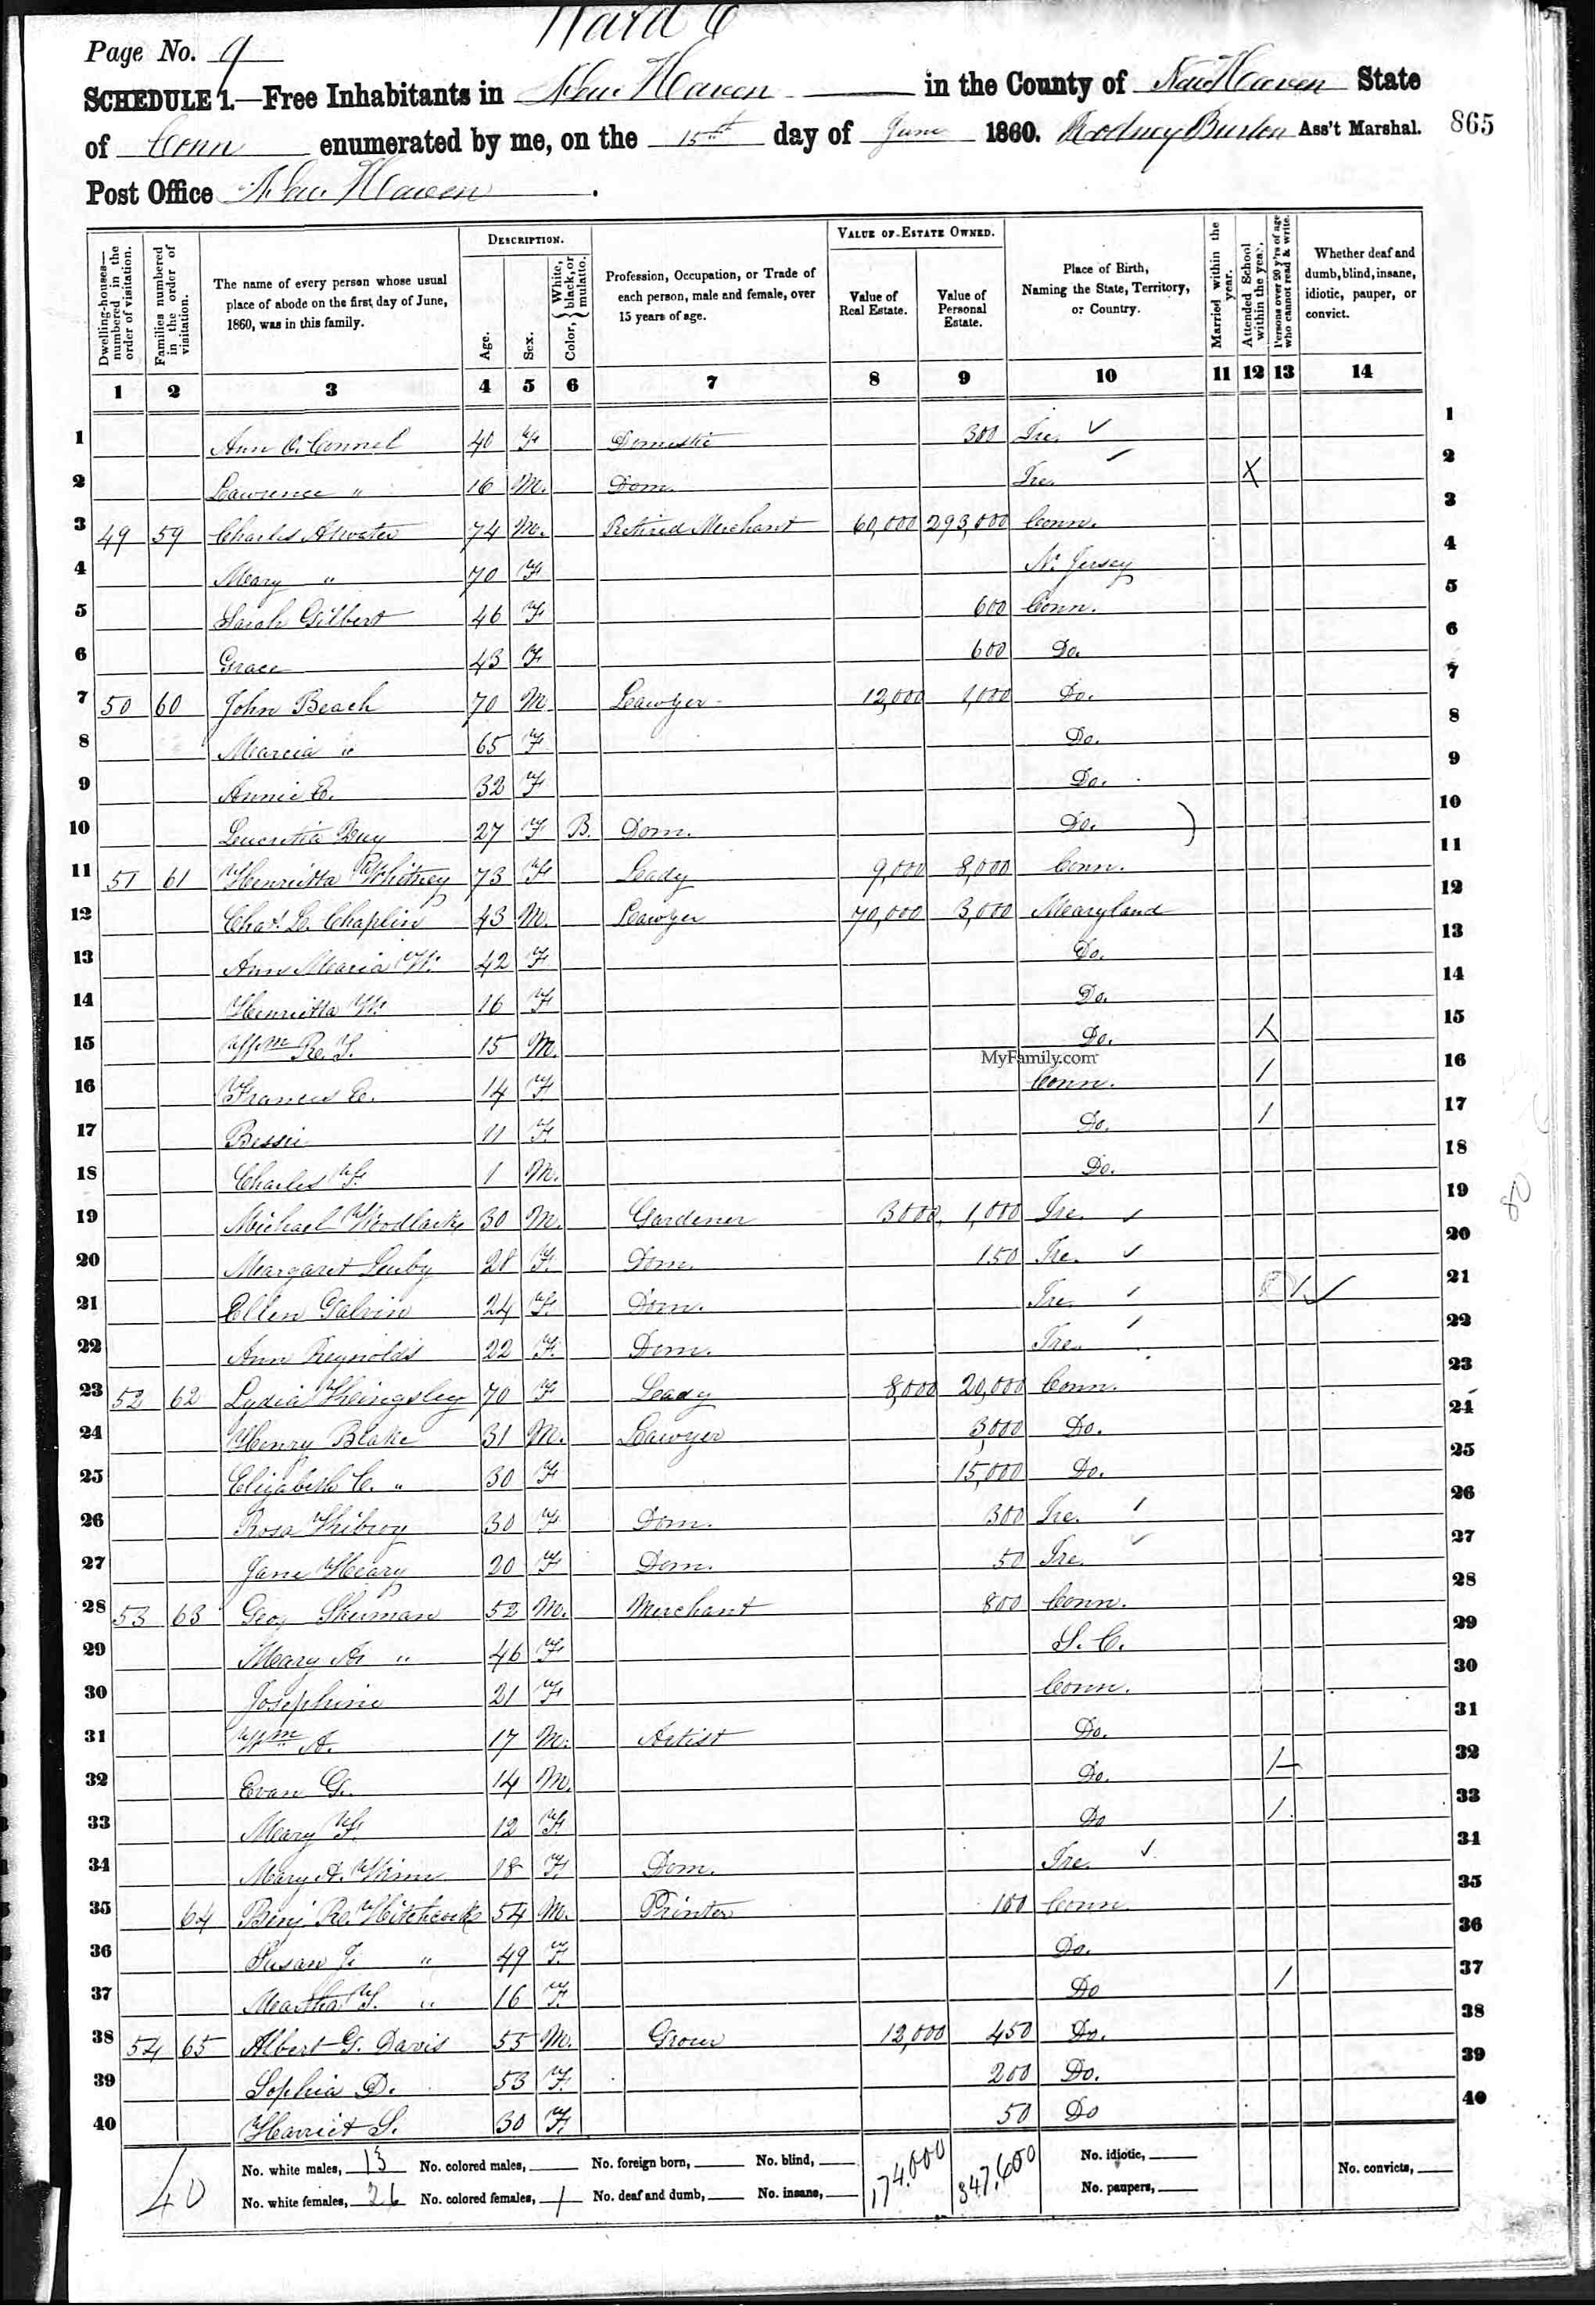 Ward 6
Page No. 9
SCHEDULE 1.—Free Inhabitants in New Haven in the County of New Haven State
of Conn enumerated by me, on the 15th day of June 1860. Rodney Burton Ass't Marshal. 865
Post Office New Haven.
Dwelling-houses—numbered in the order of visitation.
Families numbered in the order of visitation.
The name of every person whose usual place of abode on the first day of June, 1860, was in this family.
DESCRIPTION.
Age.
Sex.
Color, { White, black, or mulatto.
Profession, Occupation, or Trade of each person, male and female, over 15 years of age.
VALUE OF ESTATE OWNED.
Value of Real Estate.
Value of Personal Estate.
Place of Birth, Naming the State, Territory, or Country.
Married within the year.
Attended School within the year.
Persons over 20 y'rs of age who cannot read & write.
Whether deaf and dumb, blind, insane, idiotic, pauper, or convict.
1 2 3 4 5 6 7 8 9 10 11 12 13 14
1 Ann O. Connel 40 F Domestic 300 Ire. ✓ 1
2 Lawrence " 16 M. Dom. Ire. X 2
3 49 59 Charles Atwater 74 M. Retired Merchant 60,000 293,000 Conn. 3
4 Mary " 70 F N. Jersey 4
5 Sarah Gilbert 46 F 600 Conn. 5
6 Grace 43 F 600 Do. 6
7 50 60 John Beach 70 M Lawyer 12,000 1,000 Do. 7
8 Marcia " 65 F Do. 8
9 Annie C. 32 F Do. 9
10 Lucretia 27 F B. Dom. Do. ) 10
11 51 61 Henrietta Whitney 73 F Lady 9,000 8,000 Conn. 11
12 Chas. L. Chaplin 43 M. Lawyer 70,000 3,000 Maryland 12
13 Ann Maria W. 42 F Do. 13
14 Henrietta W. 16 F Do. 14
15 Wm R. T. 15 M. Do. X 15
MyFamily.com
16 Frances E. 14 F Conn. / 16
17 Bessie 11 F Do. / 17
18 Charles F. 1 M. Do. 18
19 Michael 30 M. Gardener 3000 1,000 Ire. ✓ 19
20 Margaret 28 F. Dom. 150 Ire. ✓ 20
21 Ellen Galvin 24 F. Dom. Ire. / ✓ 21
22 Ann Reynolds 22 F. Dom. Ire. 22
23 52 62 Lydia Kingsley 70 F Lady 8,000 20,000 Conn. 23
24 Henry Blake 31 M. Lawyer 3,000 Do. 24
25 Elizabeth C. " 30 F 15,000 Do. 25
26 Rosa 30 F Dom. 300 Ire. 26
27 Jane 20 F Dom. 50 Ire. 27
28 53 63 Geo. Sherman 52 M. Merchant 800 Conn. 28
29 Mary A. " 46 F S. C. 29
30 Josephine 21 F Conn. 30
31 Wm A. 17 M. Artist Do. 31
32 Evan G. 14 M. Do. / 32
33 Mary F. 12 F. Do / 33
34 Mary A. 18 F Dom. Ire. ✓ 34
35 64 Benj R. Hitchcock 54 M. Printer 100 Conn 35
36 Susan " 49 F. Do. 36
37 Martha " 16 F. Do / 37
38 54 65 Albert G. Davis 55 M. Grocer 12,000 450 Do. 38
39 Sophia D. 53 F. 200 Do. 39
40 Harriet S. 30 F. 50 Do 40
80
40
No. white males, 13 No. colored males, No. foreign born, No. blind, 174,000 347,600 No. idiotic,
No. white females, 26 No. colored females, 1 No. deaf and dumb, No. insane, No. paupers, No. convicts,